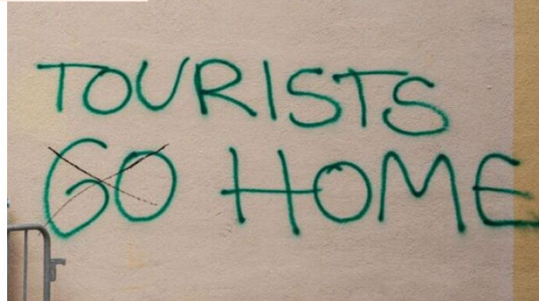 TOURISTS
GO HOME